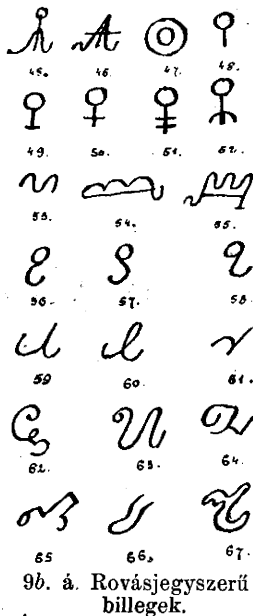 45. 46. 47. 48.
49. 50. 51. 52.
53. 54. 55.
56. 57. 58.
59 60. 61.
62. 63. 64.
65 66. 67.
9b. á. Rovásjegyszerű
billegek.